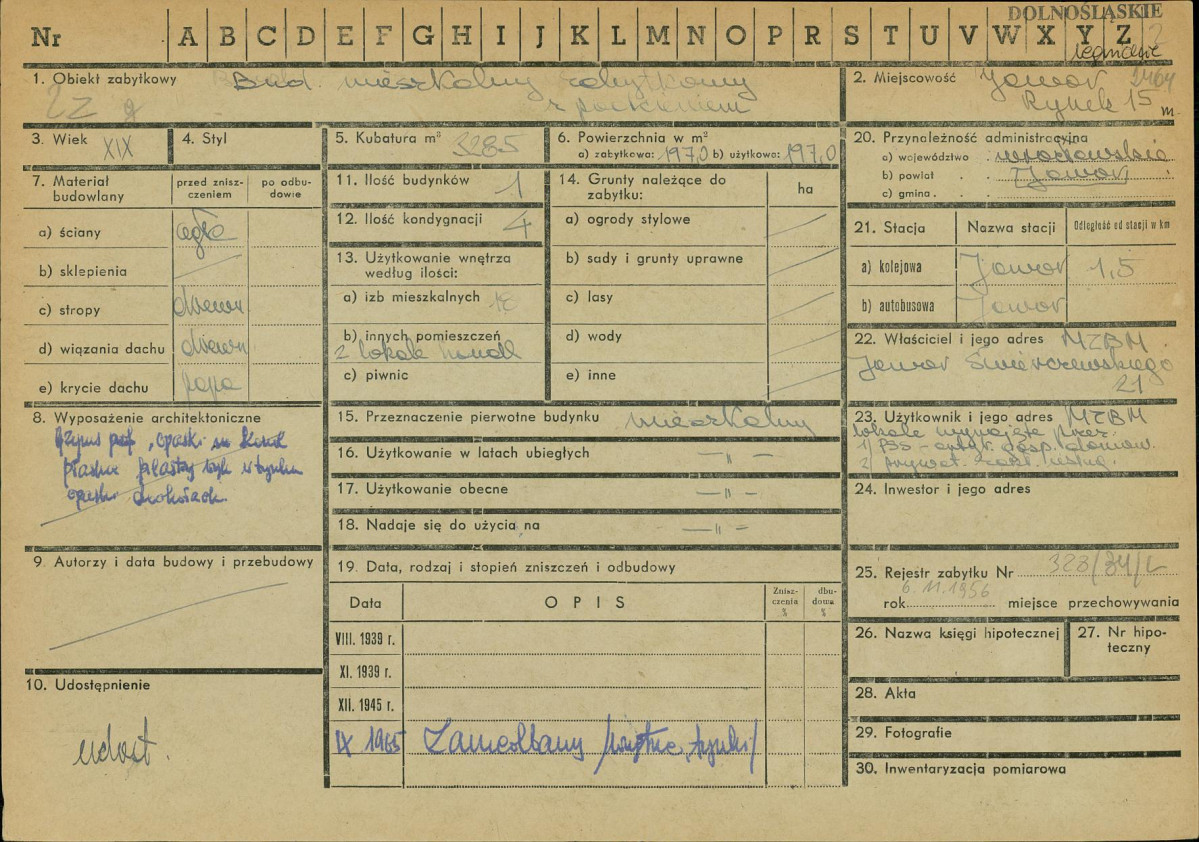 DOLNOŚLĄSKIE
Nr A B C D E F G H I J K L M N O P R S T U V W X Y Z
legnickie
1. Obiekt zabytkowy Bud. mieszkalny zabytkowy
z podcieniem
2. Miejscowość Jawor
Rynek 15
3. Wiek XIX
4. Styl
5. Kubatura m³ 3285
6. Powierzchnia w m²
a) zabytkowa: 197,0 b) użytkowa: 197,0
20. Przynależność administracyjna
a) województwo wrocławskie
b) powiat Jawor
c) gmina
7. Materiał budowlany
przed zniszczeniem
po odbudowie
a) ściany cegła
b) sklepienia
c) stropy drewn
d) wiązania dachu drewn
e) krycie dachu papa
11. Ilość budynków 1
12. Ilość kondygnacji 4
13. Użytkowanie wnętrza
według ilości:
a) izb mieszkalnych
b) innych pomieszczeń
2 lokale handl
c) piwnic
14. Grunty należące do
zabytku:
ha
a) ogrody stylowe
b) sady i grunty uprawne
c) lasy
d) wody
e) inne
21. Stacja
Nazwa stacji
Odległość od stacji w km
a) kolejowa Jawor 1,5
b) autobusowa Jawor
22. Właściciel i jego adres MZBM
Jawor Świerczewskiego
21
8. Wyposażenie architektoniczne
15. Przeznaczenie pierwotne budynku mieszkalny
16. Użytkowanie w latach ubiegłych — " —
17. Użytkowanie obecne — " —
18. Nadaje się do użycia na — " —
23. Użytkownik i jego adres MZBM
lokale wynajęte przez
1/ PSS - artyk. gosp. domow.
2/ prywat. zakł. usług
24. Inwestor i jego adres
9. Autorzy i data budowy i przebudowy
19. Data, rodzaj i stopień zniszczeń i odbudowy
Data
OPIS
Zniszczenia %
dbudowa %
VIII. 1939 r.
XI. 1939 r.
XII. 1945 r.
IX 1965 Zaniedbany /wnętrze, tynki/
25. Rejestr zabytku Nr 323/84/L
6.11.1956
rok miejsce przechowywania
26. Nazwa księgi hipotecznej
27. Nr hipoteczny
10. Udostępnienie
udost.
28. Akta
29. Fotografie
30. Inwentaryzacja pomiarowa